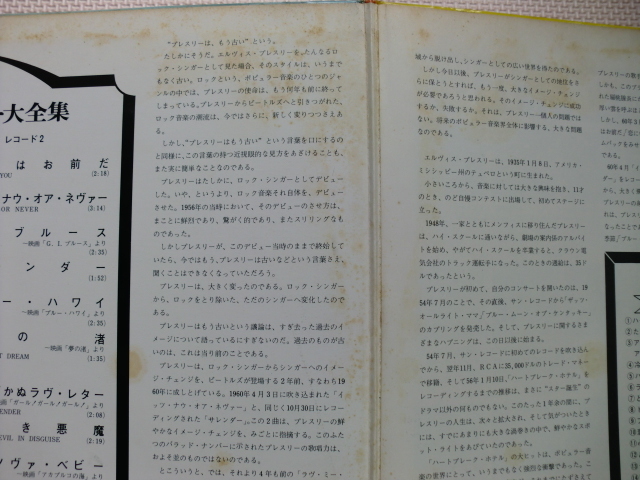 一大全集
レコード2
はお前だ
YOU (2:18)
ナウ・オア・ネヴァー
OR NEVER (3:14)
ブルース
〜映画「G.I.ブルース」より
(2:35)
ンダー
(2:52)
ー・ハワイ
〜映画「ブルー・ハワイ」より
(2:35)
の渚
〜映画「夢の渚」より
T DREAM (1:35)
かぬラヴ・レター
〜映画「ガール!ガール!ガール!」より
ENDER (2:08)
き悪魔
EVIL IN DISGUISE (2:19)
ノヴァ・ベビー
〜映画「アカプルコの海」より
"プレスリーは、もう古い"という。
たしかにそうだ。エルヴィス・プレスリーを、たんなるロ
ック・シンガーとして見た場合、そのスタイルは、いうまで
もなく古い。ロックという、ポピュラー音楽のひとつのジャ
ンルの中では、プレスリーの使命は、もう何年も前に終って
しまっている。プレスリーからビートルズへと引きつがれた、
ロック音楽の潮流は、今ではさらに、新しく変りつつさえあ
る。
しかし、"プレスリーはもう古い"という言葉を口にするの
と同様に、この言葉の持つ近視眼的な見方をあざけることも、
また実に簡単なことなのである。
プレスリーはたしかに、ロック・シンガーとしてデビュー
した。いや、というより、ロック音楽それ自体を、デビュー
させた。1956年の当時において、そのデビューのさせ方は、
まことに鮮烈であり、驚がく的であり、またスリリングなも
のであった。
しかしプレスリーが、このデビュー当時のままで終始して
いたら、今ではもう、プレスリーは古いなどという言葉さえ、
聞くことはできなくなっていただろう。
プレスリーは、大きく変ったのである。ロック・シンガー
から、ロックをとり除いた、ただのシンガーへ変化したので
ある。
プレスリーはもう古いという議論は、すぎ去った過去のイ
メージについて語っているにすぎないのだ。過去のものが古
いのは、これは当り前のことである。
プレスリーは、ロック・シンガーからシンガーへのイメー
ジ・チェンジを、ビートルズが登場する2年前、すなわち1960
年に成しとげている。1960年4月3日に吹き込まれた「イ
ッツ・ナウ・オア・ネヴァー」と、同じく10月30日にレコー
ディングされた「サレンダー」。この2曲は、プレスリーの鮮
やかなイメージ・チェンジを、みごとに指摘する。このふた
つのバラッド・ナンバーに示されたプレスリーの歌唱力は、
およそ並のものではないのである。
とこういうと、では、それより4年も前の「ラヴ・ミー・
域から脱け出し、シンガーとしての広い世界を持ったのである。
しかし今日以後、プレスリーがシンガーとしての地位をさ
らに保とうとすれば、もう一度、大きなイメージ・チェンジ
が必要であろうと思われる。そのイメージ・チェンジに成功
するか、失敗するか。それは、プレスリー一個人の問題では
ない。将来のポピュラー音楽界全体に影響する、大きな問題
なのである。
エルヴィス・プレスリーは、1935年1月8日、アメリカ・
ミシシッピー州のテュペロという町に生まれた。
小さいころから、音楽に対しては大きな興味を抱き、11才
のとき、のど自慢コンテストに出場して、初めてステージに
立った。
1948年、一家とともにメンフィスに移り住んだプレスリー
は、ハイ・スクールに通いながら、劇場の案内係のアルバイ
トを始め、やがてハイ・スクールを卒業すると、クラウン電
気会社のトラック運転手になった。このときの週給は、35ド
ルであったという。
プレスリーが初めて、自分のコンサートを開いたのは、19
54年7月のことで、その直後、サン・レコードから「ザッツ・
オールライト・ママ/ブルー・ムーン・オブ・ケンタッキー」
のカプリングを発売した。そして、プレスリーに関するさま
ざまなハプニングは、この日以後に始まる。
54年7月、サン・レコードに初めてのレコードを吹き込ん
でから、翌年11月、RCAに35,000ドルのトレード・フィー
で移籍、そして56年1月10日、「ハートブレーク・ホテル」を
レコーディングするまでの推移は、まさに"スター誕生"の
ドラマ以外の何ものでもない。このたった1年余の間に、プ
レスリーの人生は、次々と拡大され、そして気がついたとき
には、すでにあまりにも大きな渦巻きの中で、鮮やかなスポ
ット・ライトをあびていたのであった。
「ハートブレーク・ホテル」の大ヒットは、ポピュラー音
楽の世界にとって、いうまでもなく強烈な衝撃であった。こ